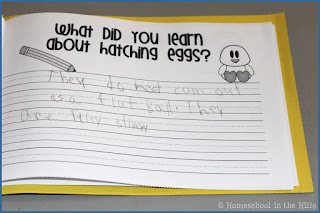 What Did You Learn
about hatching eggs?
They do not cum out
as a fluf ball. They
are slimy
© Homeschool in the Hills